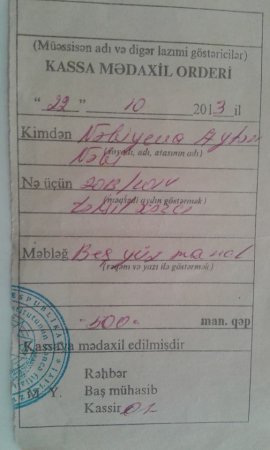 (Müəssisən adı və digər lazımi göstəricilər)
KASSA MƏDAXİL ORDERİ
"22" 10 2013 il
Kimdən Nəbiyeva Aytən
(soyadı, adı, atasının adı)
Nəbi
Nə üçün 2013/2014
(məqsədi aydın göstərmək)
təhsil
Məbləğ Beş yüz manat
(rəqəmi və yazı ilə göstərmək)
500 man. qəp
Kassaya mədaxil edilmişdir
Rəhbər
M. Y. Baş mühasib
Kassir